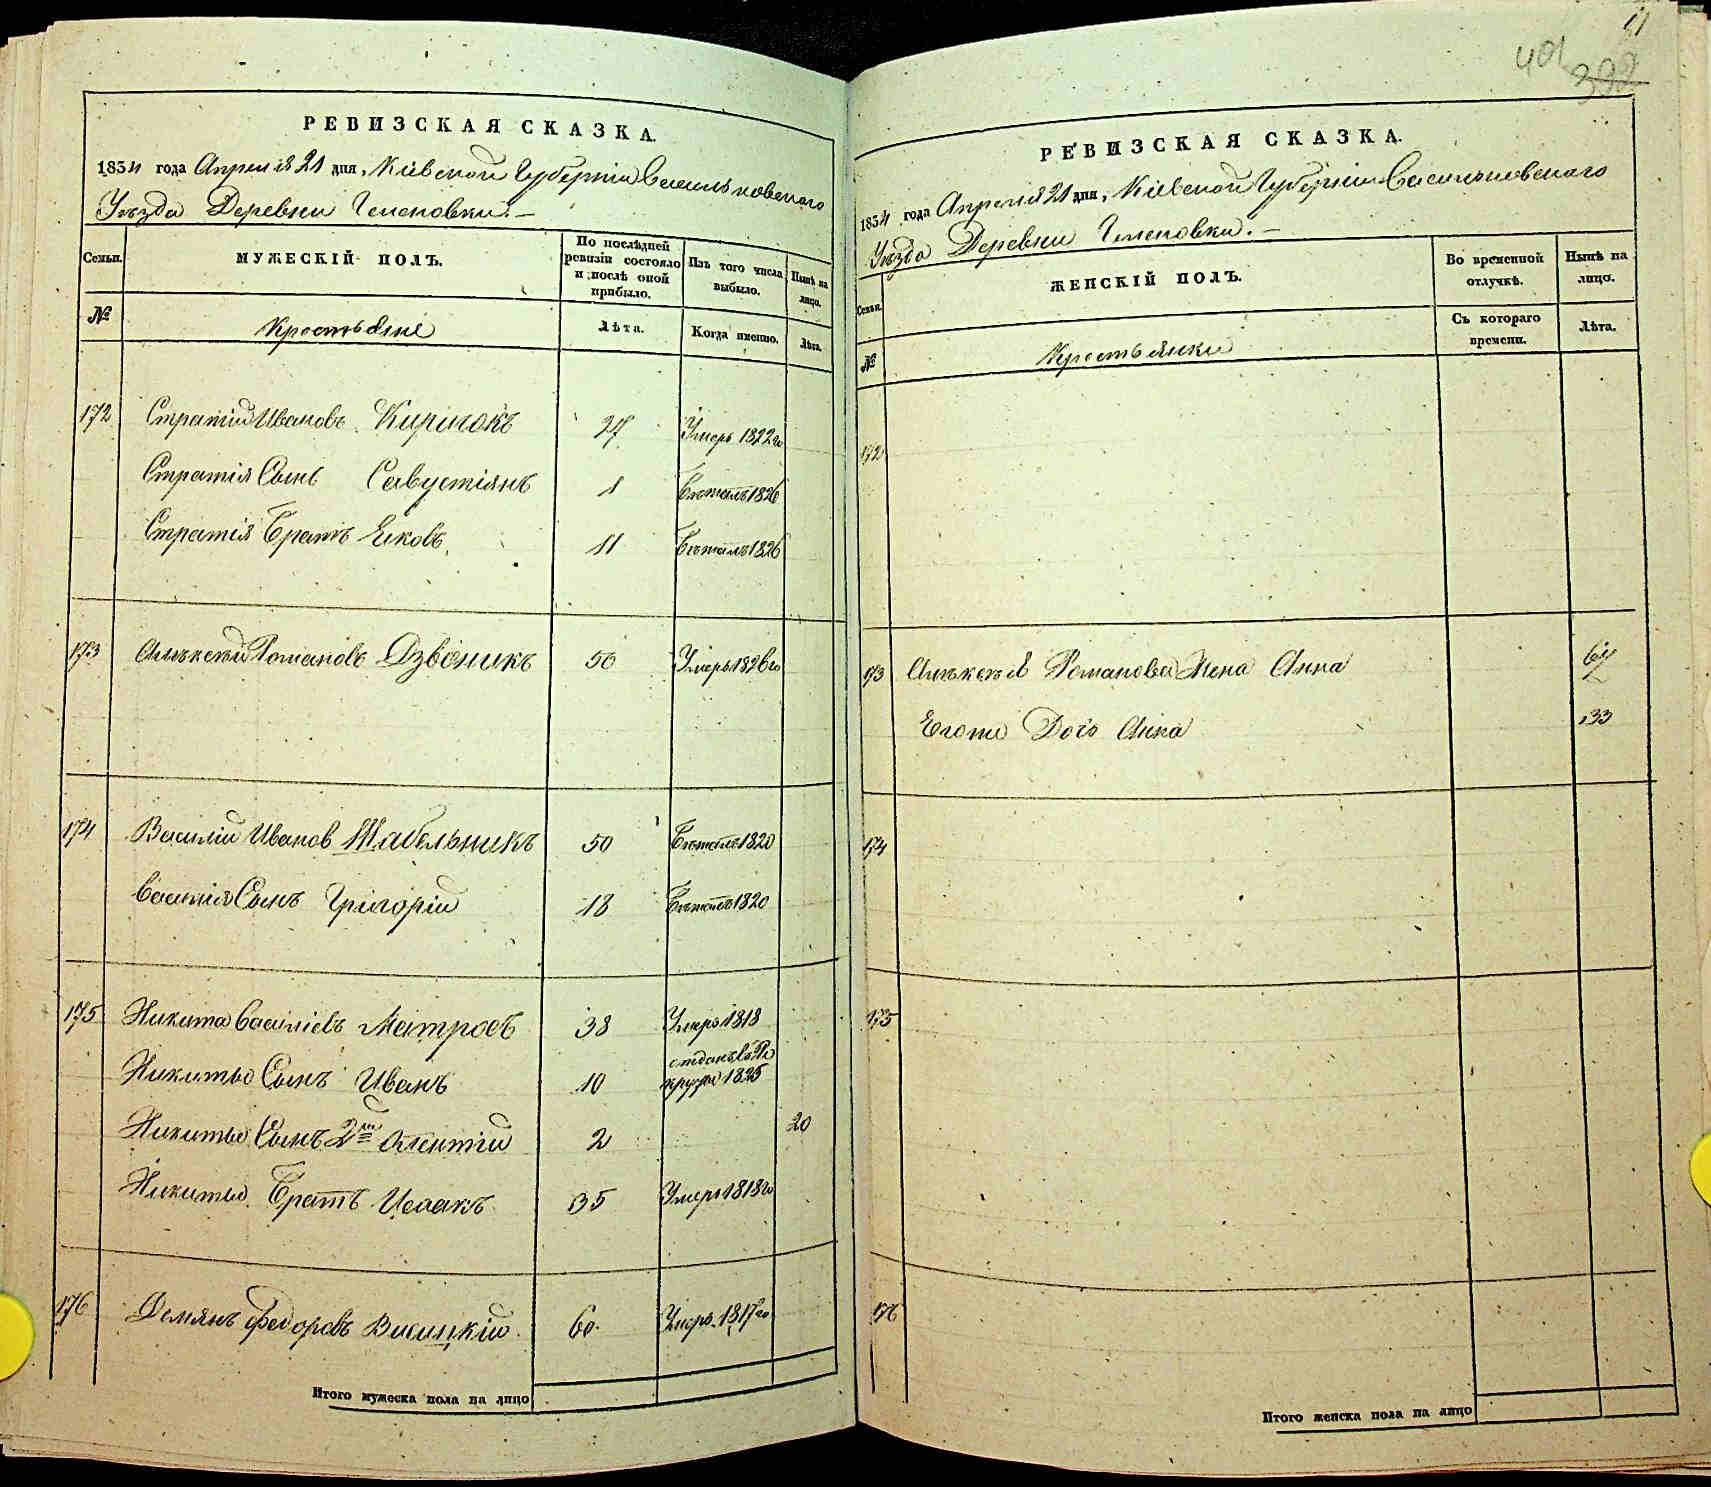 11
401
392
РЕВИЗСКАЯ СКАЗКА.
1834 года Апреля 21 дня, Кіевской Губерніи Васильковского
Уезда Деревни
Семьи.
МУЖЕСКІЙ ПОЛЪ.
По послѣдней ревизіи состояло и послѣ оной прибыло.
Изъ того числа выбыло.
Нынѣ на лицо.
№
Крестьяне
Лѣта.
Когда именно.
Лѣта.
172 Стратій Ивановъ Кирічокъ 27 Умеръ 1822го
Стратія Сынъ Савустіянъ 1 Бѣжалъ 1826
Стратія Братъ Яковъ 11 Бѣжалъ 1826
173 Алѣксѣй Романовъ Дзвоникъ 50 Умеръ 1826го
174 Василій Иванов Шабельникъ 50 Бѣжалъ 1820
Василія Сынъ Григорій 18 Бѣжалъ 1820
175 Никита Василіевъ 38 Умеръ 1818
Никиты Сынъ Иванъ 10 отданъ в Рекруты 1825
Никиты Сынъ 2й 2 20
Никиты Братъ Исаакъ 35 Умеръ 1818го
176 Демянъ Федоровъ 60 Умеръ 1817го
Итого мужеска пола на лицо
РЕВИЗСКАЯ СКАЗКА.
1834 года Апреля 21 дня, Кіевской Губерніи Васильковского
Уезда Деревни
Семьи.
ЖЕНСКІЙ ПОЛЪ.
Во временной отлучкѣ.
Нынѣ на лицо.
№
Крестьянки
Съ котораго времени.
Лѣта.
172
173 Алѣксѣя Романова Жена Анна 67
Егоже Дочь Анна 33
174
175
176
Итого женска пола на лицо